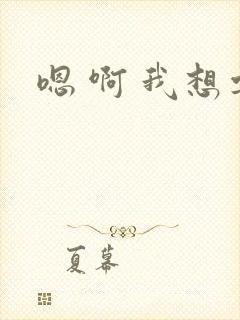 嗯啊我想
夏幕